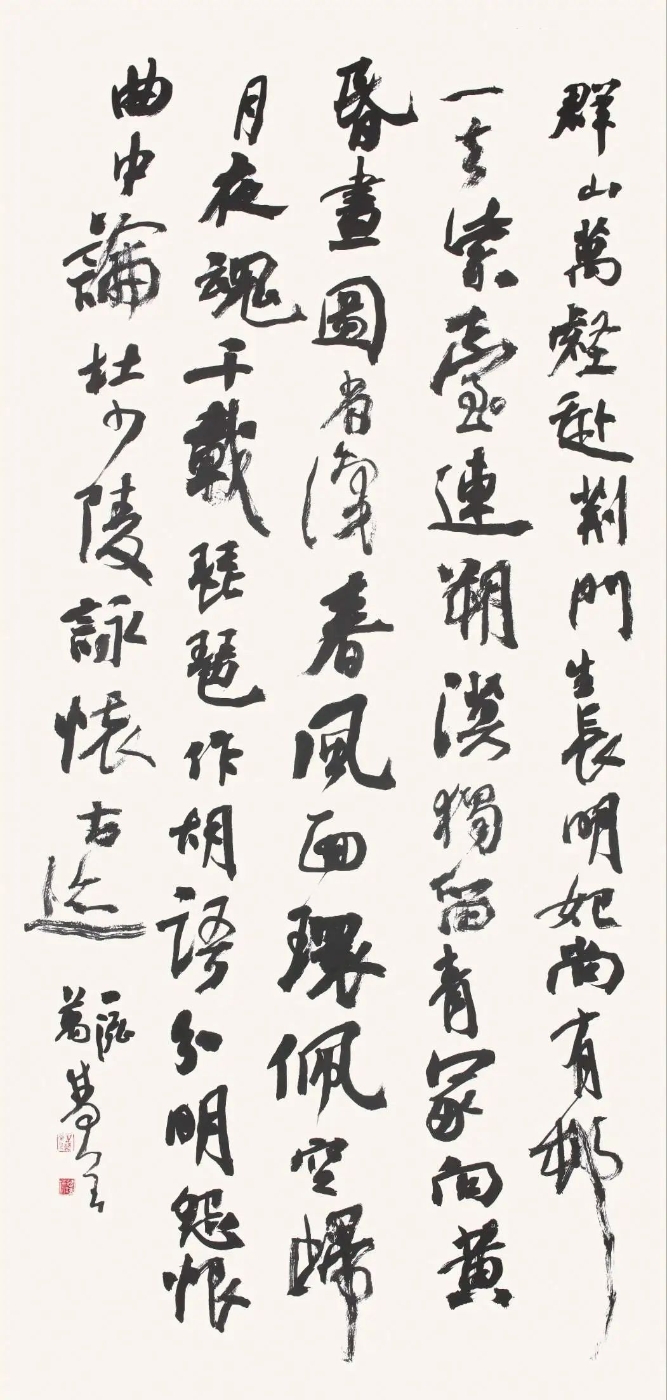 群山萬壑赴荆門生長明妃尚有邨
一去紫臺連朔漠獨留青冢向黃
昏畫圖省識春風面環佩空歸
月夜魂千載琵琶作胡語分明怨恨
曲中論杜少陵詠懷古迹